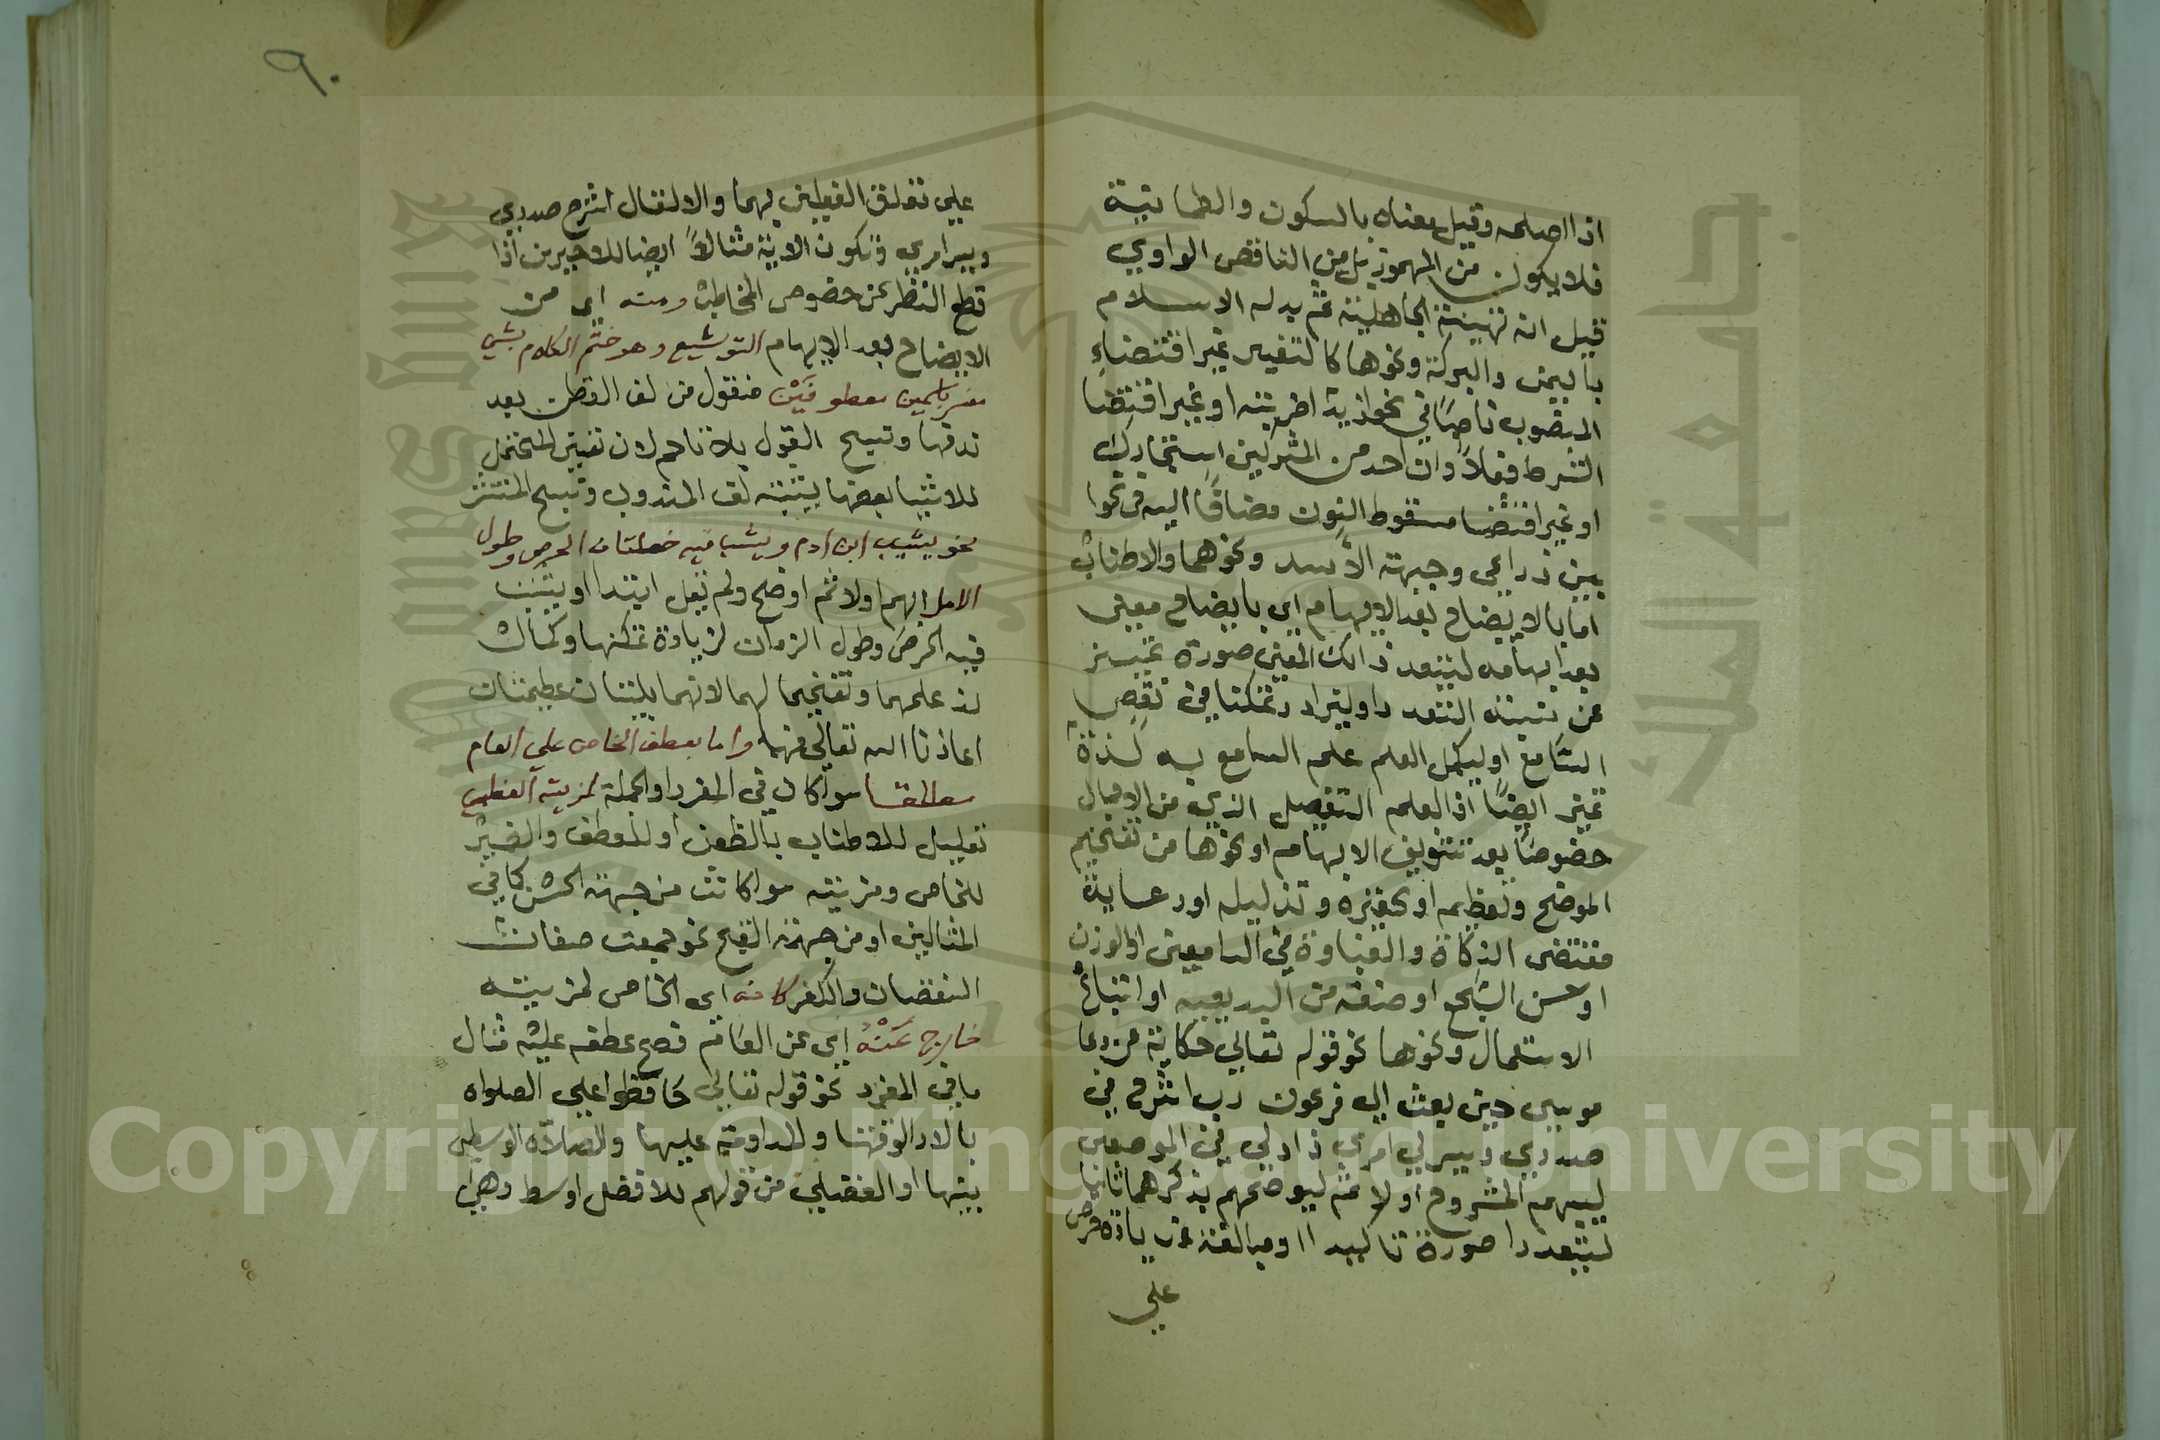 اذا اصلحه وقيل معناه بالسكون والطمانينة
فلا يكون من المهموز بل من الناقص الواوي
قيل انه تهنية الجاهلية ثم بدله الاسلام
باليمن والبركة ونحوها كالتفسير غير اقتضاء
المنصوب ناصبا في نحو ازيدا ضربته او غير اقتضا
الشرط فعلا وان احد من المشركين استجارك
او غير اقتضا سقوط النون مضافا اليه في نحو
بين ذراعي وجبهة الاسد ونحوهما والاطناب
اما بالايضاح بعد الابهام اي بايضاح معنى
بعد ابهامه ليتعدد ذالك المعنى صورة
عن التعدد او ليزاد تمكنا في
السامع او ليكمل العلم علم السامع به لذة
ايضا اذ العلم التفصيل الذي من الاجمال
خصوصا بعد تشويق الابهام او نحوها من تفخيم
الموضح وتعظيمه او تحقيره وتذليله او رعاية
مقتضى الذكاة والغباوة في السامعين او الوزن
او حسن السجع او صنعة من البديعيه او اتباع
الاستعمال ونحوها نحو قوله تعالى حكاية عن دعا
موسى حين بعث الى فرعون رب اشرح لي
صدري ويسر لي امري زاد لي في الموضعين
ليبهم المشروح اولا ثم ليوضحهم بذكرهما ثانيا
ليتعددا صورة تاكيدا او مبالغة
على
٩٠
على تعلق الفعلين بهما والا لقال اشرح صدري
ويسر امري وتكون الاية مثالا ايضا للاخيرين اذا
قطع النظر عن خصوص المخاطب ومنه اي من
الايضاح بعد الابهام التوشيع وهو ختم الكلام بشي
مفسر باسمين معطوفين منقول من لف القطن بعد
ندفها القول بلا لان تعيين المحتمل
للاشيا بعضها يشبه لف المندوف المنتشر
نحو يشيب ابن ادم ويشب فيه خصلتان الحرص وطول
الامل ابهم اولا ثم اوضح ولم يقل ابتدا او يشب
فيه الحرص وطول الزمان لزيادة تمكنها وكمال
لذ علمهما وتفخيما لهما لانهما بليتان عظيمتان
اعاذنا الله تعالى منهما واما بعطف الخاص على العام
مطلقا سوا كان في المفرد او الجملة لمزيته
تعليل للاطناب او للعطف والضمير
للخاص ومزيته سوا كانت من جهة الحسن كما في
المثالين او من جهة القبح نحو جمعت صفات
النقصان والكفر كانه اي الخاص لمزيته
خارج عنه اي عن العام فصح عطفه عليه مثال
ما في المفرد نحو قوله تعالى حافظوا على الصلواه
بالادا لوقتها والمداومة عليها والصلاة الوسطى
بينها او الفضلى من قولهم للافضل اوسط وهي
Copyright © King Saud University